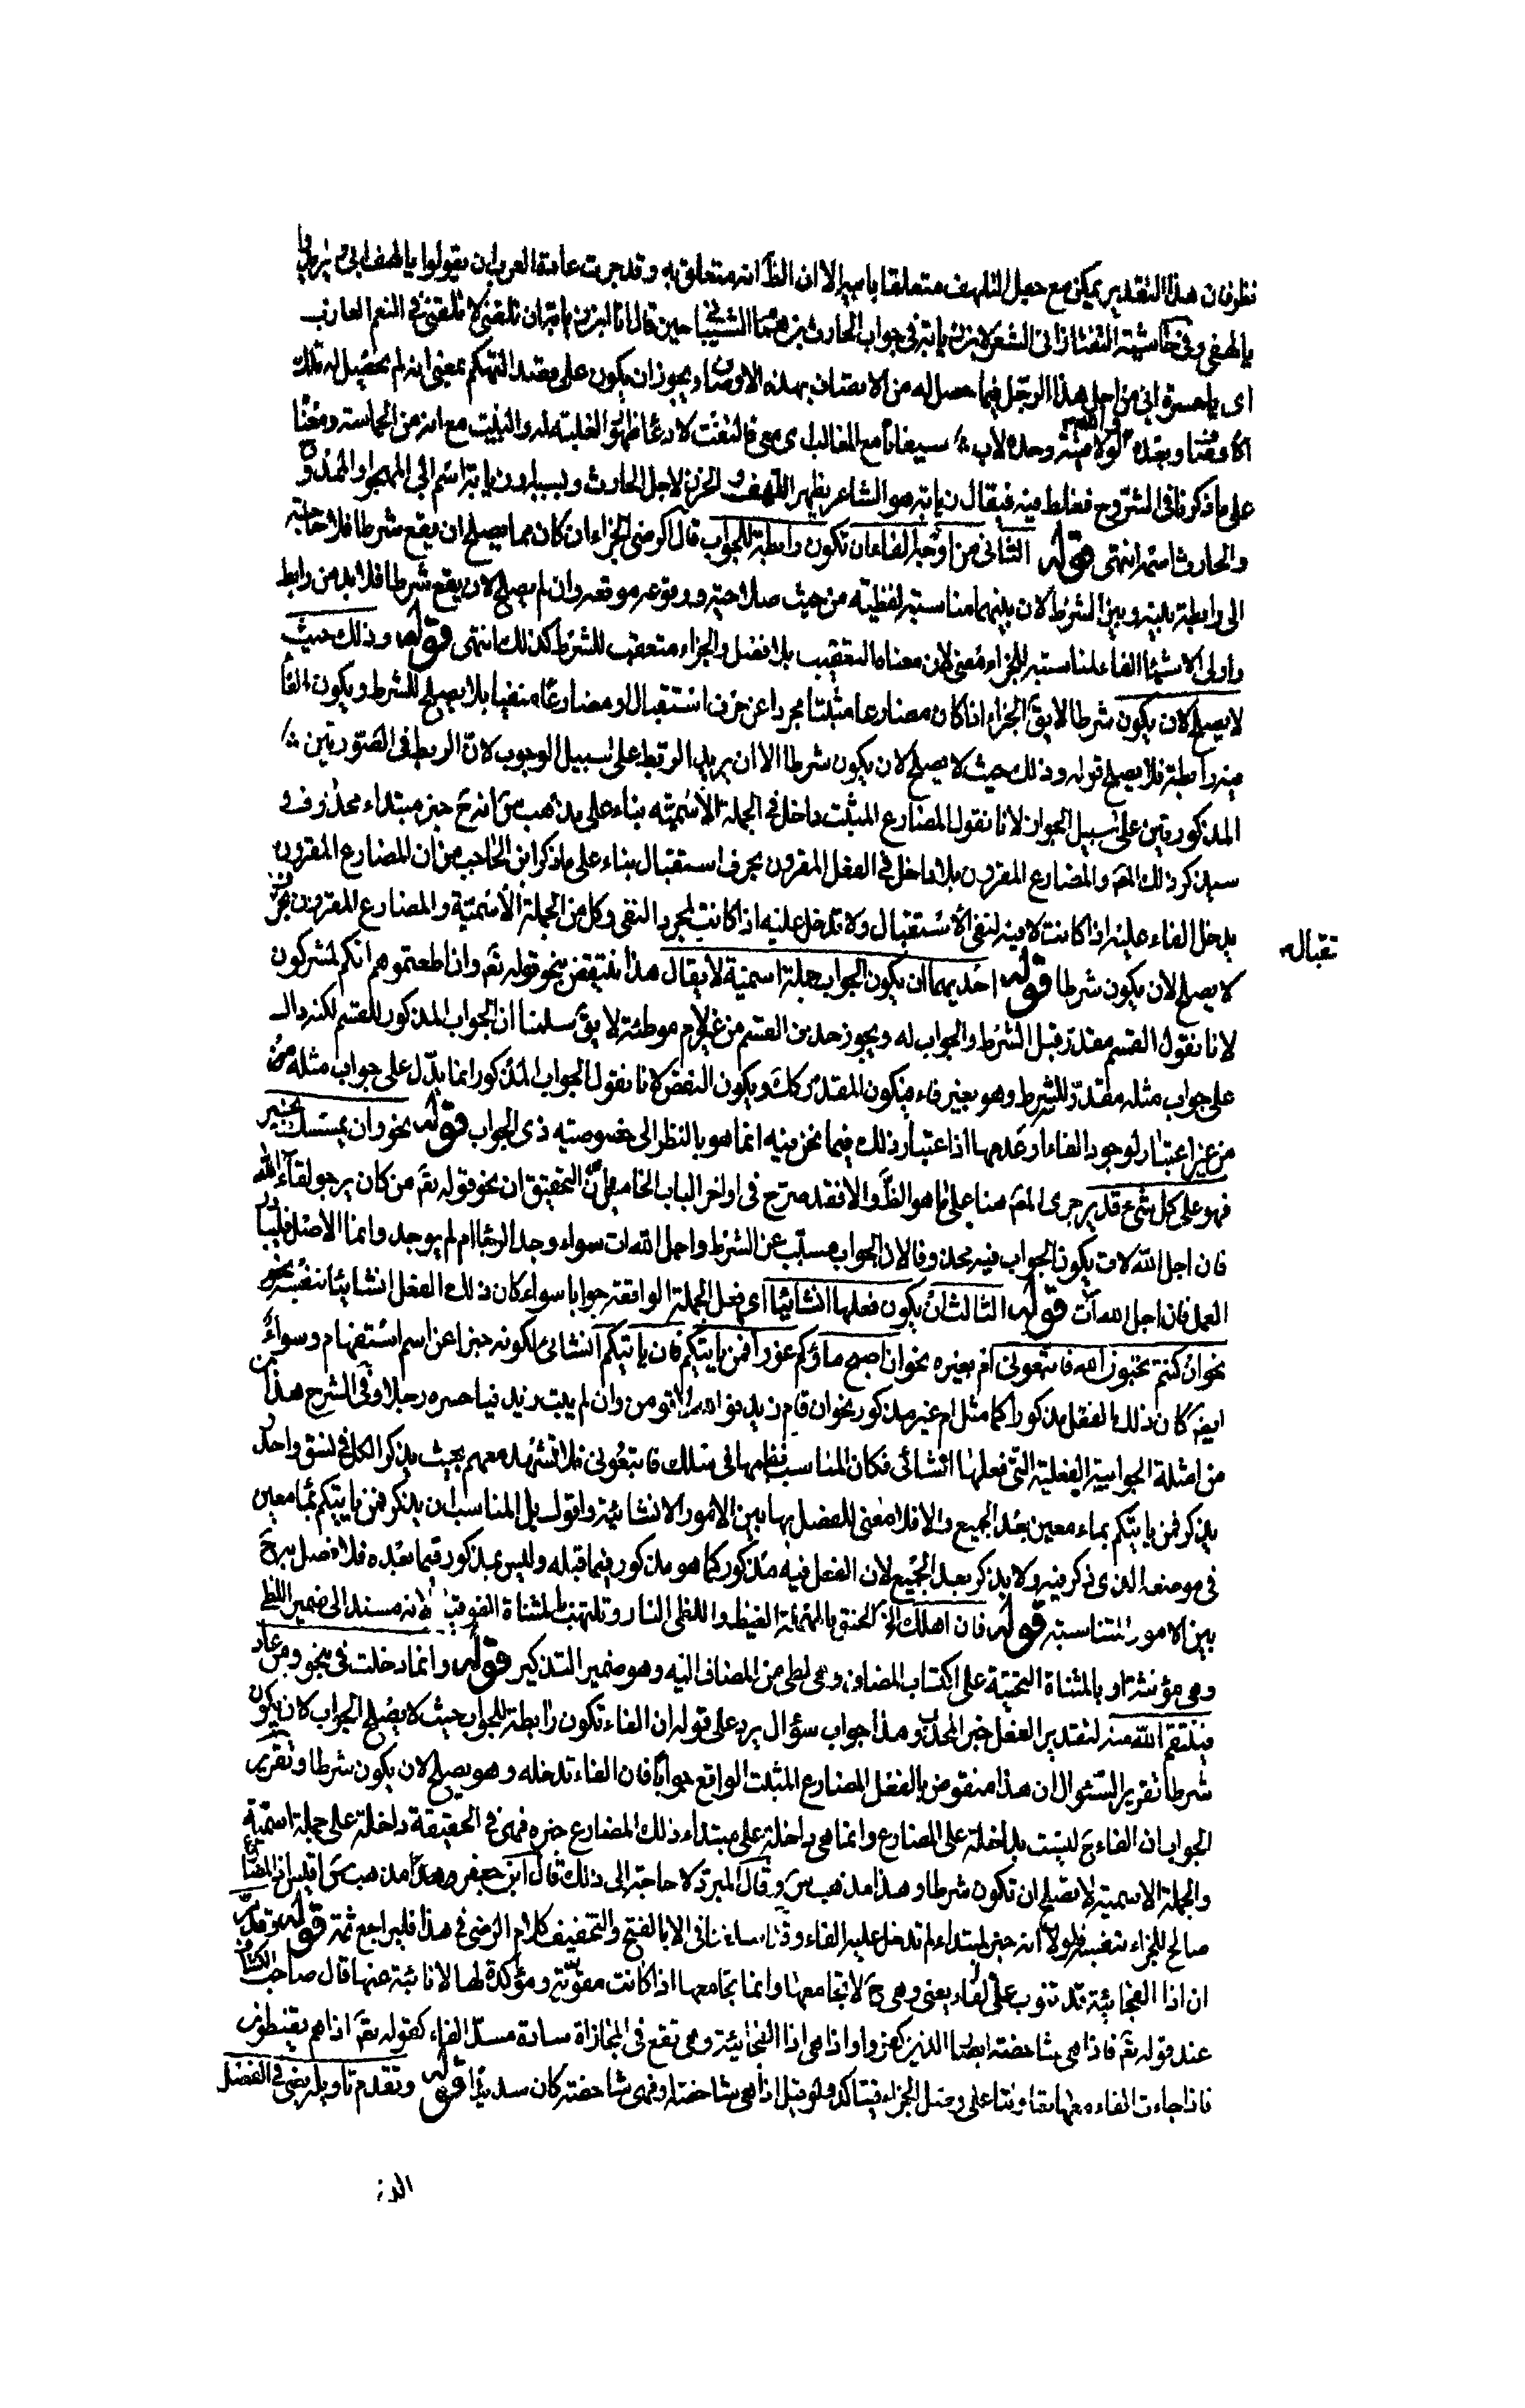 نظر فان هذا التقدير يمكن مع جعل التلهف متعلقا بامهير الا ان الظ انه متعلق به وقد جرت عادة العرب ان يقولوا يا لهف ابى
يا لهفى وفى حاشية التفتازانى الشعر لابن زيابة فى جواب الحارث بن همام الشيبانى حين قال انا ابن زيابة ان تلقنى لا تلقنى فى النعم العازب
اى يا حسرة ابى من اجل هذا الرجل فيما حصل له من الاتصاف بهذه الاوصاف ويجوز ان يكون على قصد التهكم بمعنى انه لم يحصل له تلك
الاوصاف وبعده والله لو لاقيته وحده لآب سيفانا مع الغالب اى معى فالتفت لادعاء ظهور الغلبة له والبيت مع انه من الحماسة ومعنا
على ما ذكرنا فى الشروح فغلط فيه فيقال ان زيابة هو الشاعر يظهر التلهف والحزن لاجل الحارث وبسبه او ان زيابة اسم ابى المهجو
والحارث اسمه انتهى قوله الثانى من اوجه الفاء ان تكون رابطة للجواب قال الرضى الجزاء ان كان مما يصلح ان يقع شرطا فلا حاجة
الى رابطة بينه وبين الشرط لان بينهما مناسبة لفظية من حيث صلاحية وقوعه موقعه وان لم يصلح لان يقع شرطا فلا بد من رابط
واولى الاشياء الفاء لمناسبته للجزاء معنى لان معناه التعقيب بلا فصل والجزاء متعقب للشرط كذلك انتهى قوله وذلك حيث
لا يصلح لان يكون شرطا لا يق الجزاء اذا كان مضارعا مثبتا مجردا عن حرف استقبال او مضارعا منفيا بلا يصلح للشرط ويكون الفاء
فيه رابطة فلا يصلح قوله وذلك حيث لا يصلح لان يكون شرطا الا ان يريد الربط على سبيل الوجوب لان الربط فى الصورتين
المذكورتين على سبيل الجواز لانا نقول المضارع المثبت داخل فى الجملة الاسمية بناء على مذهب من انه ح خبر مبتداء محذوف و
سيذكر ذلك المص والمضارع المقرون بلا داخل فى الفعل المقرون بحرف استقبال بناء على ما ذكر ابن الحاجب من ان المضارع المقرون
يدخل الفاء عليه اذا كانت لا فيه لنفى الاستقبال ولا تدخل عليه اذا كانت لمجرد النفى وكل من الجملة الاسمية والمضارع المقرون بحرف
تقباله
لا يصلح لان يكون شرطا قوله احديهما ان يكون الجواب جملة اسمية لا يقال هذا ينتقض بنحو قوله تع وان اطعتموهم انكم لمشركون
لانا نقول القسم مقدر قبل الشرط والجواب له ويجوز حذف القسم من غير لام موطئة لا يق سلمنا ان الجواب المذكور للقسم لكنه دال
على جواب مثله مقدر للشرط وهو بغير فاء فيكون المقدر كك ويكون النقض لانا نقول الجواب المذكور انما يدل على جواب مثله
من غير اعتبار لوجود الفاء او عدمها اذا اعتبار ذلك فيما نحن فيه انما هو بالنظر الى خصوصية ذى الجواب قوله نحو وان يمسسك بخير
فهو على كل شىء قدير جرى المص هنا على ما هو الظ والا فقد صرح فى اواخر الباب الخامس ان التحقيق ان نحو قوله تع من كان يرجو لقاء الله
فان اجل الله لات يكون الجواب فيه محذوفا لان الجواب مسبب عن الشرط واجل الله ات سواء وجد الرجاء ام لم يوجد وانما الاصل فليبادر
العمل فان اجل الله آت قوله الثالث ان يكون فعلها انشائيا اى فعل الجملة الواقعة جوابا سواء كان ذلك الفعل انشائيا بنفسه نحو
نحو ان كنتم تحبون الله فاتبعونى ام بغيره نحو ان اصبح ماؤكم غورا فمن يأتيكم فان يأتيكم انشائى لكونه خبرا عن اسم استفهام وسواء
ايض كان ذلك الفعل مذكورا كما مثل ام غير مذكور نحو ان قام زيد فوالله لاقومن وان لم يتب زيد فيا حسره رجلا وفى الشرح هذا
من امثلة الجوابية الفعلية التى فعلها انشائى فكان المناسب نظمها فى سلك فاتبعونى فلا تشهد معهم بحيث يذكر الكل فى نسق واحد
يذكر فمن يأتيكم بماء معين بعد الجميع والا فلا معنى للفصل بها بين الامور الانشائية واقول بل المناسب ان يذكر فمن يأتيكم بماء معين
فى موضعه الذى ذكر فيه ولا يذكر بعد الجميع لان الفعل فيه مذكور كما هو مذكور فيما قبله وليس بمذكور فيما بعده فلا فصل به ح
بين الامور المتناسبة قوله فان اهلك الحنق بالمهملة الغيظ واللظى النار وتلتهب بالمثناة الفوقية لانه مسند الى ضمير اللظى
وهى مؤنثة او بالمثناة التحتية على اكتساب المضاف وهى لظى من المضاف اليه وهو ضمير التذكير قوله وانما دخلت فى نحو ومن عاد
فينتقم الله منه لتقدير الفعل خبر المحذوف وهذا جواب سؤال يرد على قوله ان الفاء تكون رابطة للجواب حيث لا يصلح الجواب لان يكون
شرطا تقرير السئوال ان هذا منقوض بالفعل المضارع المثبت الواقع جوابا فان الفاء تدخله وهو يصلح لان يكون شرطا وتقرير
الجواب ان الفاء ح ليست بداخلة على المضارع وانما هى داخلة على مبتداء ذلك المضارع خبره فهى فى الحقيقة داخلة على جملة اسمية
والجملة الاسمية لا تصلح ان تكون شرطا وهذا مذهب س وقال المبرد لا حاجة الى ذلك قال ابن جعفر وهذا مذهب س اقيس اذ المضارع
صالح للجزاء بنفسه فلولا انه خبر لمبتداء لم تدخل عليه الفاء وقد ساغنا فى الا بالفتح والتخفيف كلام الرضى فى هذا فليراجع ثمة قوله وقد مر
ان اذا الفجائية قد تنوب على الفاء يعنى وهى ح لا تجامعها وانما تجامعها اذا كانت مقوية ومؤكدة لها لا نائبة عنها قال صاحب الكشاف
عند قوله تع فاذا هى شاخصة ابصار الذين كفروا واذا هى اذا الفجائية وهى تقع فى المجازاة سادة مسد الفاء كقوله تع اذا هم يقنطون
فاذا جاءت الفاء معها تعاونتا على وصل الجزاء فيتاكد ولو قيل اذا هى شاخصة او فهى شاخصة كان سديدا قوله وتقدم تاويله يعنى فى الفصل